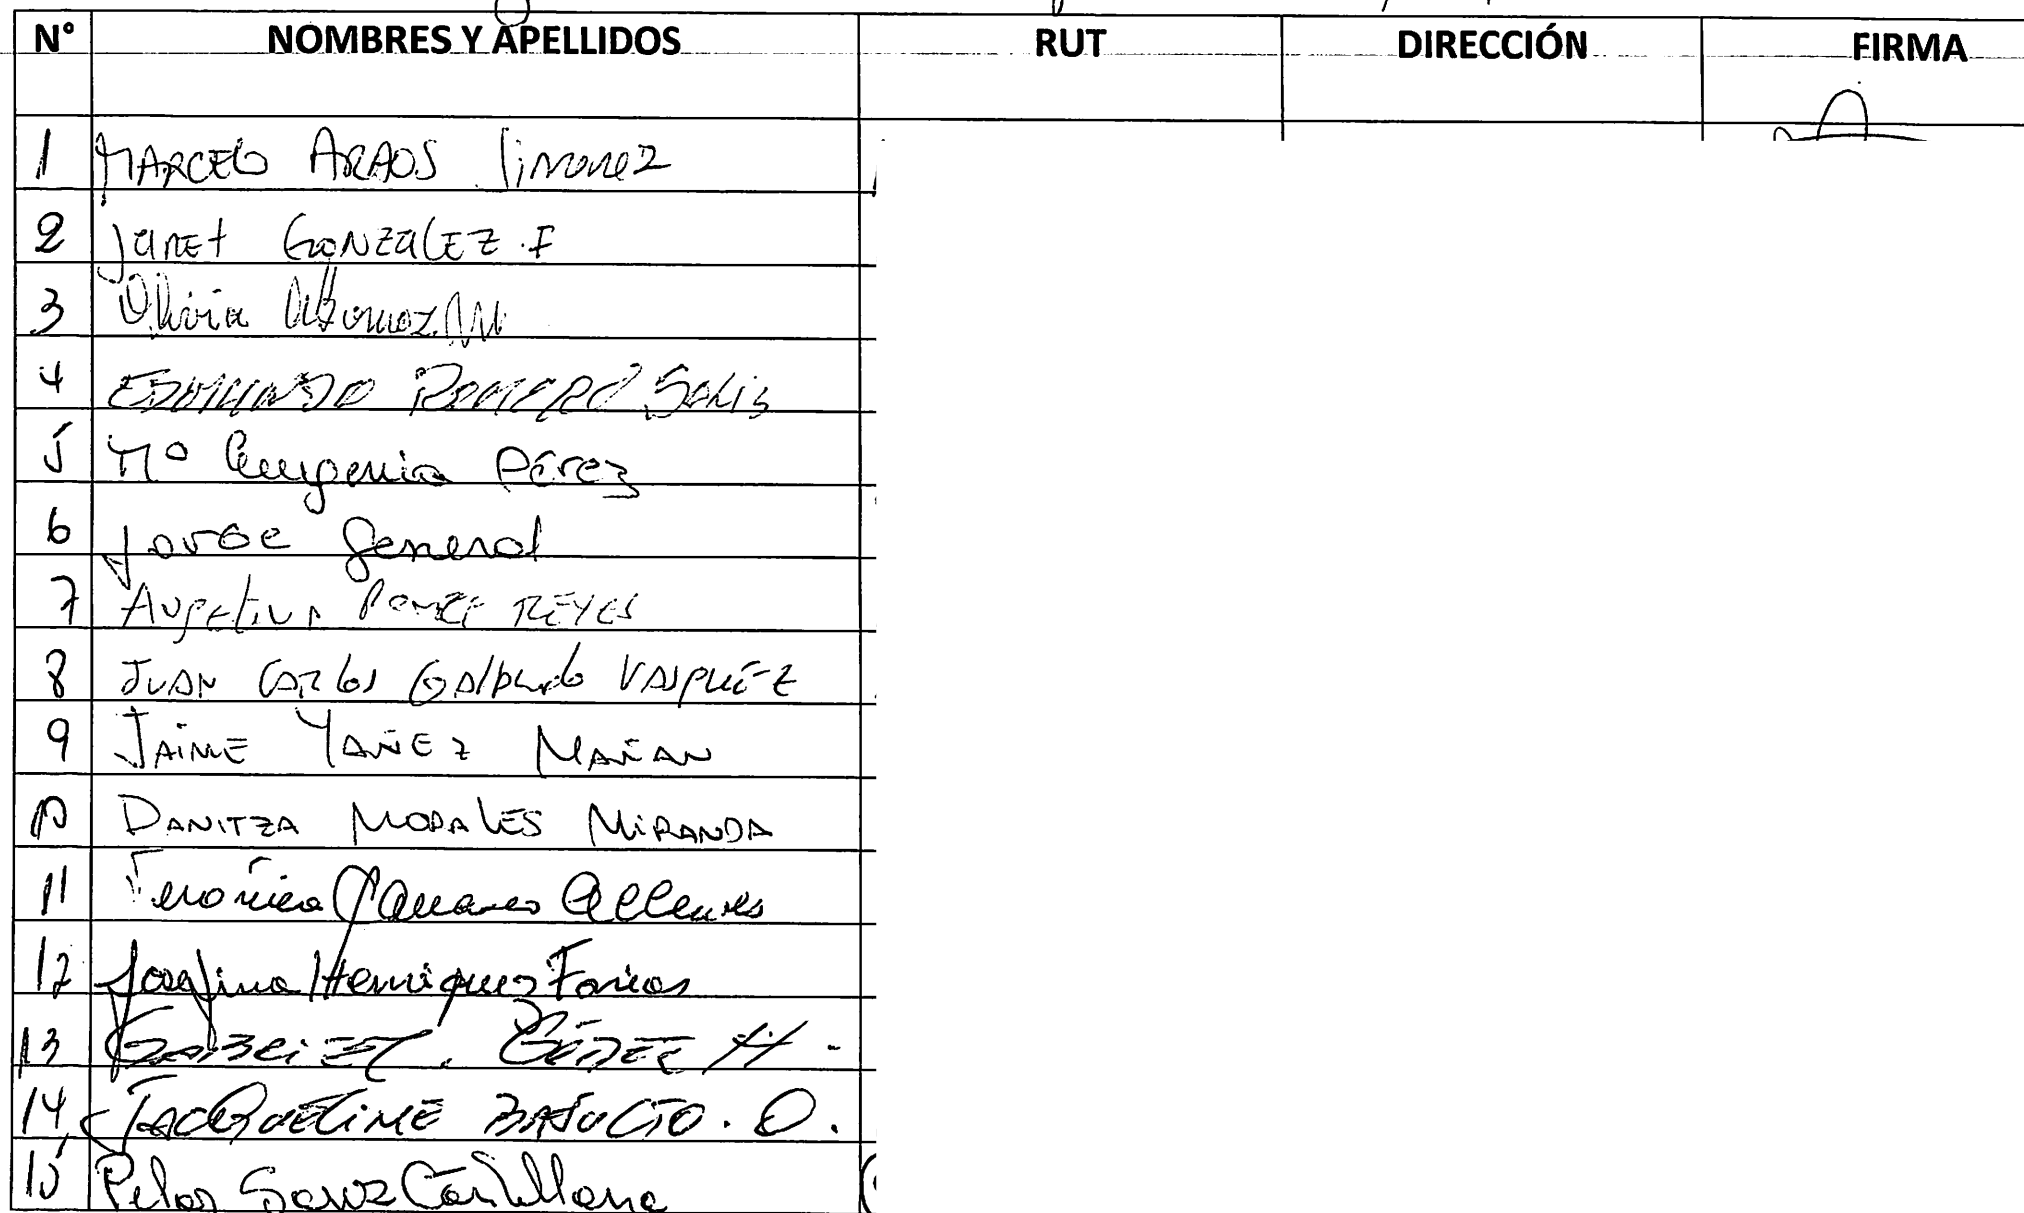 N° NOMBRES Y APELLIDOS RUT DIRECCIÓN FIRMA
1 MARCELO ARAOS Jimenez
2 Janet GONZALEZ . F
3 Olivia Albornoz M
4 EDMUNDO ROMERO SOLIS
5 Mª Eugenia Pérez
6 Jorge General
7 Angelina Ponce REYES
8 JUAN CARLOS Galindo VASQUEZ
9 JAIME YAÑEZ MAÑAN
10 DANITZA MORALES MIRANDA
11 Verónica
12 Josefina Henriquez Farias
13 GABRIEL. H.
14 JACQUELINE BASUCTO. O.
15 Pilar Sanz Castellano